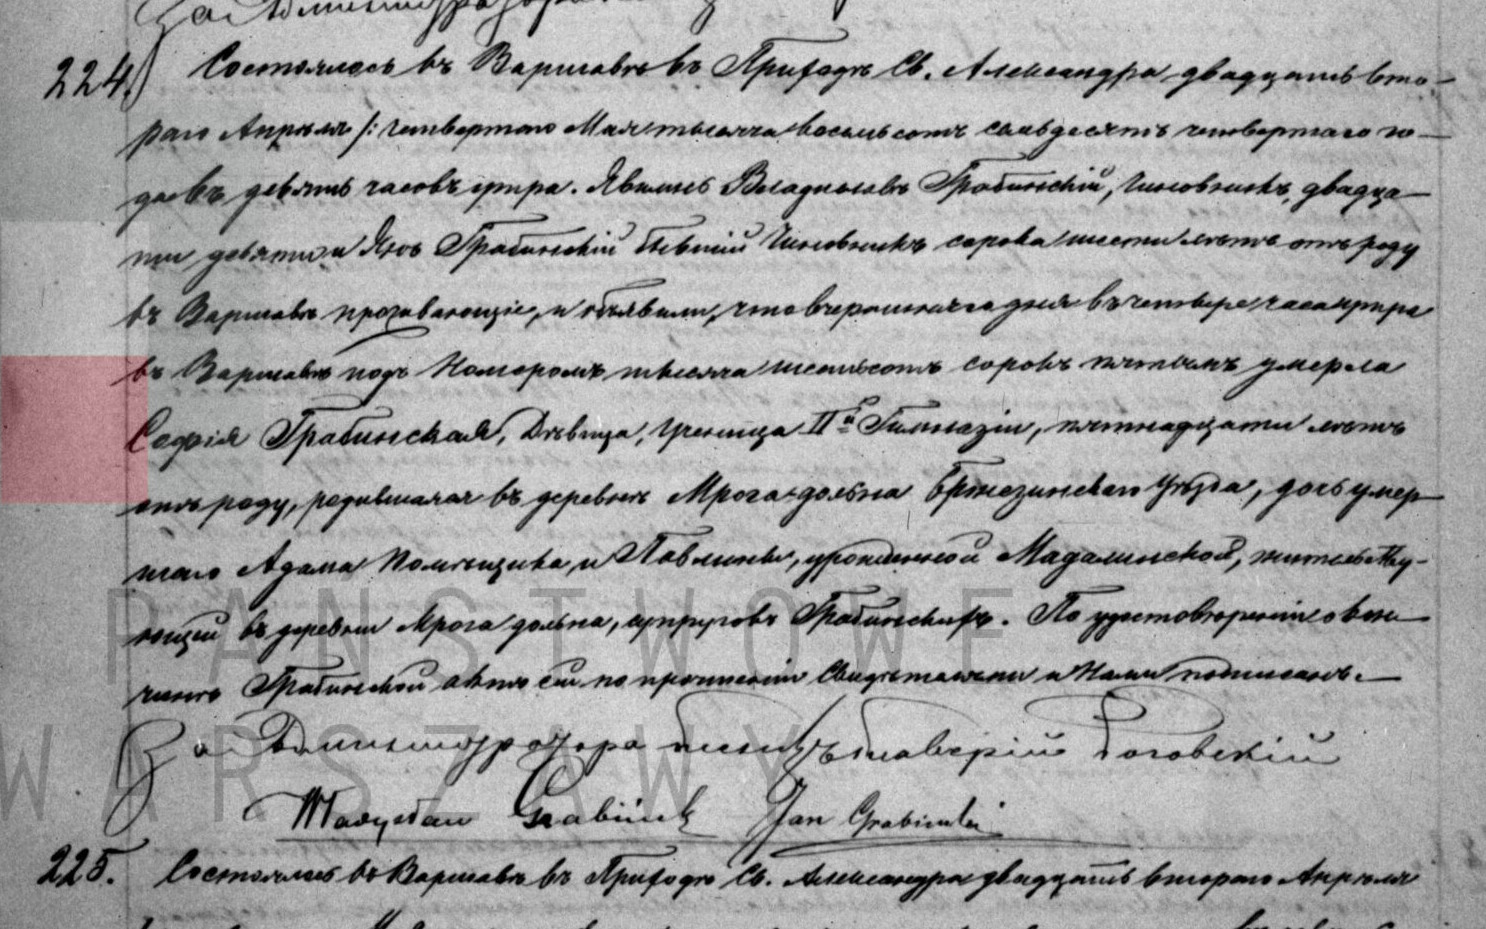 За Администратора
224) Состоялось въ Варшавѣ въ Приходѣ Св. Александра двадцать вто-
раго Апрѣля /: Четвертаго Мая тысяча восемьсотъ семьдесятъ четвертаго го-
да въ девять часовъ утра. Явились Владиславъ Грабинскій, Чиновникъ, двадца-
ти девяти и Янъ Грабинскій бывшій Чиновникъ сорока шести лѣтъ отъ роду
въ Варшавѣ проживающіе, и объявили, что вчерашняго дня въ четыре часа утра
въ Варшавѣ подъ Номеромъ тысяча шестьсотъ сорокъ пятымъ умерла
Софія Грабинская, Дѣвица, Ученица IIй Гимназіи, пятнадцати лѣтъ
отъ роду, родившаяся въ деревнѣ Мрога-дольна Бржезинскаго Уѣзда, дочь умер-
шаго Адама Помѣщика, и Павлины, урожденной Мадалинской, жительству-
ющей въ деревни Мрога дольна, супруговъ Грабинскихъ. По удостовѣреніи о кон-
чинѣ Грабинской актъ сей по прочтеніи Свидѣтелями и Нами подписанъ.
За Администратора Ксендзъ Ксаверій Роговскій
Władysław Grabiński Jan Grabiński
225. Состоялось въ Варшавѣ въ Приходѣ Св. Александра двадцать втораго Апрѣля
PAŃSTWOWE
WARSZAWY